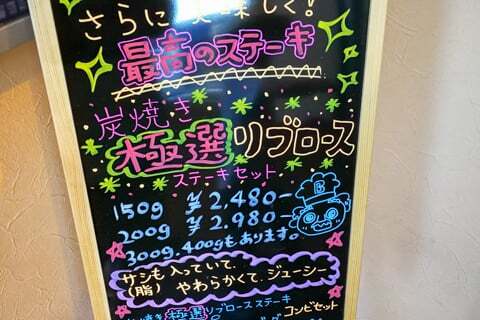 さらに美味しく!
最高のステーキ
炭焼き
極選リブロース
ステーキセット
150g ¥2,480-
200g ¥2,980-
300g.400gもあります。
サシも入っていて、
(脂) やわらかくて、ジューシー
焼き 極選リブロースステーキ
コンビセット